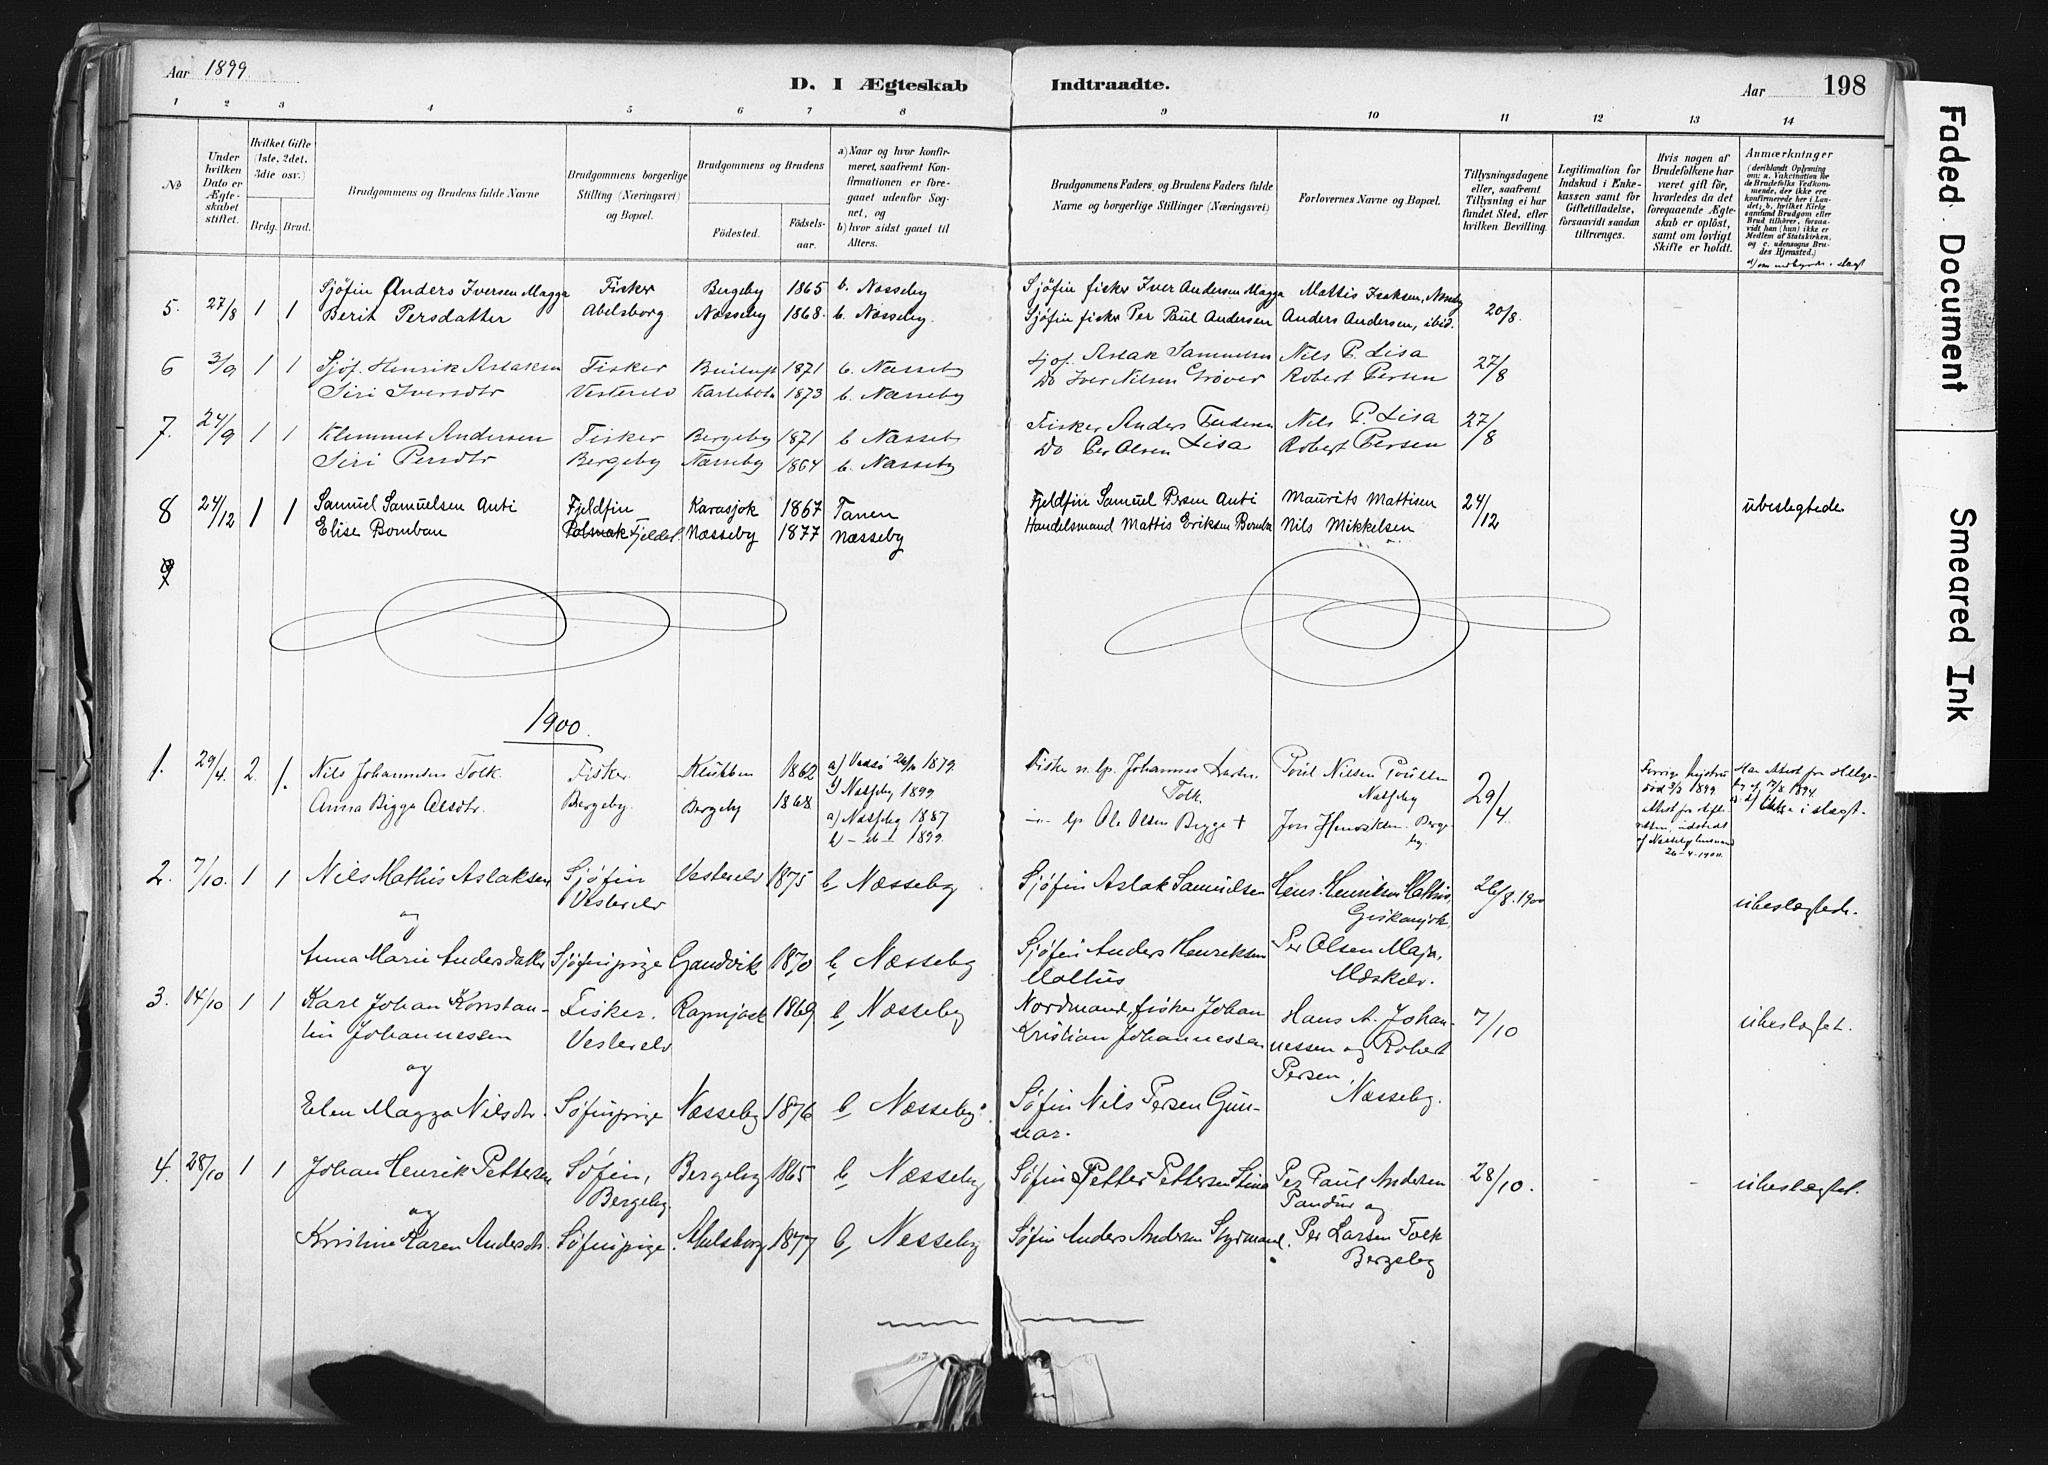 Aar 1899
D. I Ægteskab Indtraadte.
Aar 198
1 2 3 4 5 6 7 8 9 10 11 12 13 14
No
Under hvilken Dato er Ægteskabet stiftet.
Hvilket Gifte (1ste, 2det, 3die osv.)
Brdg. Brud.
Brudgommens og Brudens fulde Navne
Brudgommens borgerlige Stilling (Næringsvei) og Bopæl.
Brudgommens og Brudens
Fødested. Fødselsaar.
a) Naar og hvor konfirmeret, saafremt Konfirmationen er foregaaet udenfor Sognet, og
b) hvor sidst gaaet til Alters.
Brudgommens Faders, og Brudens Faders fulde Navne og borgerlige Stillinger (Næringsvei)
Forlovernes Navne og Bopæl.
Tillysningsdagene eller, saafremt Tillysning ei har fundet Sted, efter hvilken Bevilling.
Legitimation for Indskud i Enkekassen samt for Giftetilladelse, forsaavidt saadan tiltrænges.
Hvis nogen af Brudefolkene har været gift før, hvorledes da det foregaaende Ægteskab er opløst, samt om lovligt Skifte er holdt.
Anmærkninger (deriblandt Oplysning om: a. Vaccination for de Brudefolks Vedkommende, der ikke ere konfirmerede her i Landet; b. hvilket Kirkesamfund Brudgom eller Brud tilhører, forsaavidt han (hun) ikke er Medlem af Statskirken, og c. udensogns Brudes Hjemsted.)
5. 27/8 1 1 Sjøfin Anders Iversen Magga Fisker Bergeby 1865 b. Næsseby Sjøfin fisker Iver Andersen Magga Mattis Isaksen, Næsseby 20/8.
Berit Persdatter Abelsborg Næsseby 1868. b. Næsseby. Sjøfin fisker Per Paul Andersen Anders Andersen, ibid.
6 3/9 1 1 Sjøf. Henrik Aslaksen Fisker 1871 b. Næsseby Sjøf. Aslak Samuelsen Nils P. Lisa 27/8
Siri Iversdtr Vesterelv 1873 b. Næsseby Do Iver Nilsen Grøver Robert Persen
7. 24/9 1 1 Klemmet Andersen Fisker Bergeby 1871 b Næsseby Fisker Anders Nils P. Lisa 27/8
Siri Persdtr Bergeby Næsseby 1864 b. Næsseby Do Per Olsen Lisa Robert Persen
8 24/12 1 1 Samuel Samuelsen Anti Fjeldfin Karasjok 1867 Tanen Fjeldfin Samuel Persen Anti Maurits Mattisen 24/12 ubeslegtede
Elise Bomban Polmak Fjelder. Næsseby 1877 Næsseby Handelsmand Mattis Eriksen Nils Mikkelsen
9
1900.
1. 29/4. 2. 1. Nils Johannesen Tolk. Fisker. Klubben 1862 a) Vadsø 1879. Johannes Larsen Poul Nilsen 29/4
Anna Bigga Olsdtr. Bergeby. Bergeby 1868 b) Næsseby 1899 Tolk. Næsseby
a) Næsseby 1887 Ole Olsen Bigga + Jon Henriksen. Bergeby.
b – 1899.
Forrige død 1899 26-4-1900.
1894. Ikke i slægt.
2. 7/10. 1 1 Nils Mathis Aslaksen Sjøfin Vesterelv 1875 b Næsseby Sjøfin Aslak Samuelsen Henr. Henriksen Mathis, 26/8.1900 ubeslægtede.
og Vesterelv
Anna Marie Andersdatter Sjøfinpige Gandvik 1870 b Næsseby Sjøfin Anders Henriksen Per Olsen Maja,
Mathis Mæskelv.
3. 14/10 1 1 Karl Johan Konstan- Fisker. 1869 b Næsseby Nordmand, fisker Johan Hans A. Johan- 7/10 ubeslægtet.
tin Johannessen Vesterelv Kristian Johannessen nessen og Robert
og Persen,
Elen Magga Nilsdtr. Søfinpige Næsseby 1876 b Næsseby. Søfin Nils Persen Gun- Næsseby.
nar.
4. 28/10 1 1 Johan Henrik Pettersen Søfin, Bergeby 1865 b Næsseby Søfin Petter Pettersen Stina Per Paul Andersen 28/10. ubeslægtet.
og Bergeby. Pandur og
Kristine Karen Andersdtr. Søfinpige. Abelsborg 1877 b, Næsseby Søfin Anders Andersen Styrmand. Per Larsen Tolk
Bergeby
Faded Document
Smeared Ink